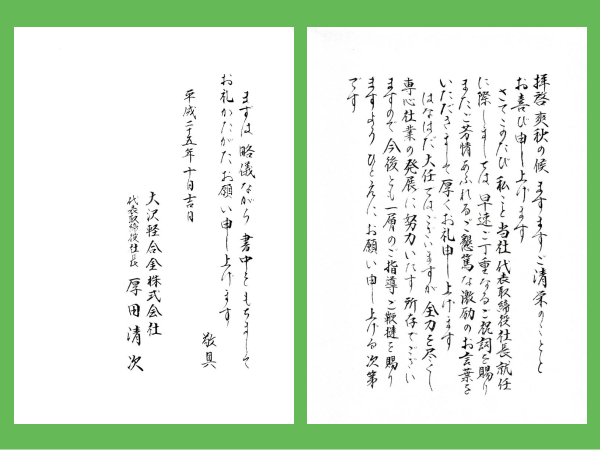 拝啓 爽秋の候 ますますご清栄のことと
お喜び申し上げます
さてこのたび 私こと 当社 代表取締役社長就任
に際しましては 早速ご丁重なるご祝詞を賜り
またご芳情あふれるご懇篤な激励のお言葉を
いただきまして 厚くお礼申し上げます
はなはだ大任ではございますが 全力を尽くし
専心社業の発展に努力いたす所存でござい
ますので 今後とも一層のご指導ご鞭撻を賜り
ますよう ひとえにお願い申し上げる次第
です
まずは 略儀ながら 書中をもちまして
お礼かたがたお願い申し上げます
敬具
平成二十五年十月吉日
大沢軽合金株式会社
代表取締役社長 厚田清次